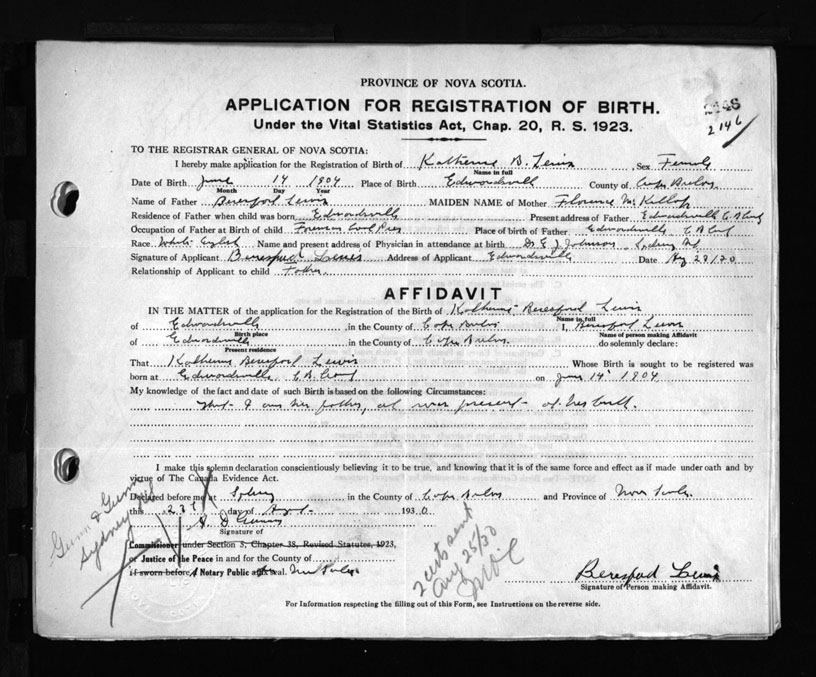 PROVINCE OF NOVA SCOTIA.
APPLICATION FOR REGISTRATION OF BIRTH.
Under the Vital Statistics Act, Chap. 20, R. S. 1923.
2146
TO THE REGISTRAR GENERAL OF NOVA SCOTIA:
I hereby make application for the Registration of Birth of Katherine B. Lewis Sex Female
Name in full
Date of Birth June 14 1904 Place of Birth Edwardsville County of Cape Breton
Month Day Year
Name of Father Beresford Lewis MAIDEN NAME of Mother Florence McKillop
Residence of Father when child was born Edwardsville Present address of Father Edwardsville C. B. Co
Occupation of Father at Birth of child Foreman Coal Pier Place of birth of Father Edwardsville C B Co
Race White English Name and present address of Physician in attendance at birth Dr E J Johnson Sydney
Signature of Applicant Beresford Lewis Address of Applicant Edwardsville Date Aug 23/30
Relationship of Applicant to child Father
AFFIDAVIT
IN THE MATTER of the application for the Registration of the Birth of Katherine Beresford Lewis
Name in full
of Edwardsville , in the County of Cape Breton I, Beresford Lewis
Birth place Name of person making Affidavit
of Edwardsville , in the County of Cape Breton. do solemnly declare:
Present residence
That Katherine Beresford Lewis Whose Birth is sought to be registered was
born at Edwardsville C. B. on June 14 1904
My knowledge of the fact and date of such Birth is based on the following Circumstances:
That I am her father, and was present at her birth.
I make this solemn declaration conscientiously believing it to be true, and knowing that it is of the same force and effect as if made under oath and by
virtue of The Canada Evidence Act.
Declared before me at Sydney in the County of Cape Breton and Province of Nova Scotia
this 23rd day of August 1930
Gunn & Gunn
Sydney
Signature of
Commissioner under Section 3, Chapter 38, Revised Statutes, 1923,
or Justice of the Peace in and for the County of
if sworn before A Notary Public seal. Nova Scotia
2 certs sent
Aug 25/30
Beresford Lewis
Signature of Person making Affidavit.
For Information respecting the filling out of this Form, see Instructions on the reverse side.